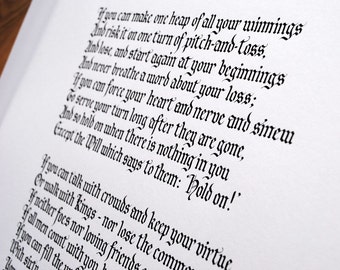 If you can make one heap of all your winnings
And risk it on one turn of pitch-and-toss,
And lose, and start again at your beginnings
And never breathe a word about your loss;
If you can force your heart and nerve and sinew
To serve your turn long after they are gone,
And so hold on when there is nothing in you
Except the Will which says to them: 'Hold on!'
If you can talk with crowds and keep your virtue,
Or walk with Kings - nor lose the common
If neither foes nor loving friends
If all men count with you,
If you can fill the
With sixty